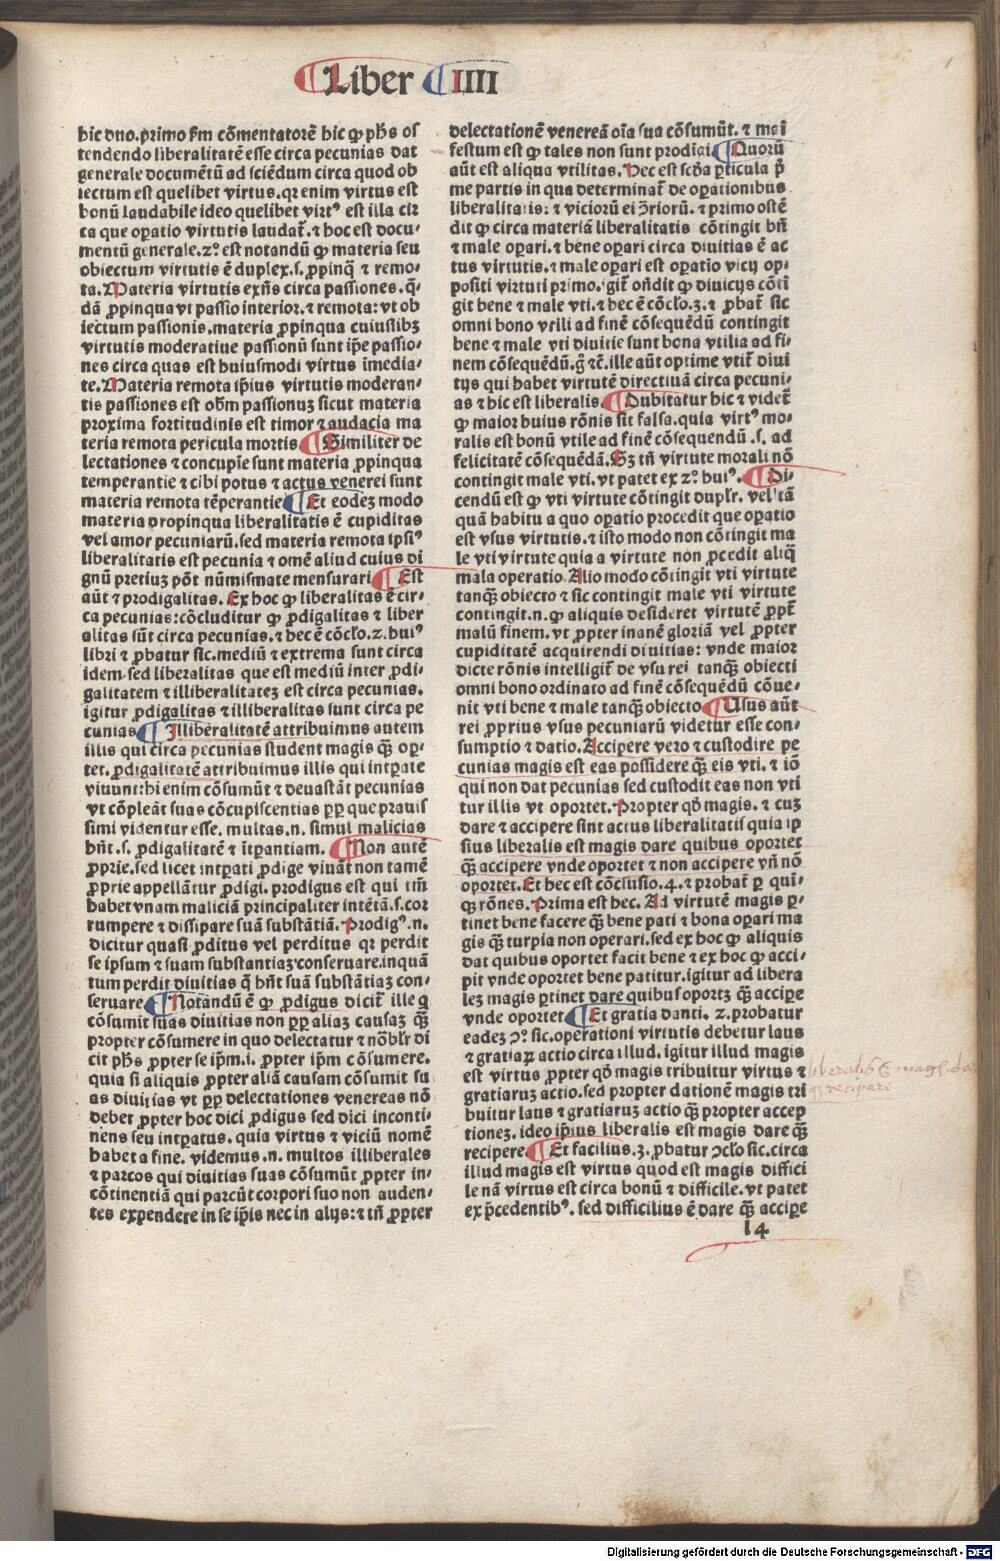 Liber IIII
hic duo.primo ẜm cōmentatorē hic ꝙ ph̄s os
tendendo liberalitatē esse circa pecunias dat
generale documētū ad sciēdum circa quod ob
iectum est quelibet virtus.qꝛ enim virtus est
bonū laudabile ideo quelibet virtꝰ est illa cir
ca que oꝑatio virtutis laudat̄. ⁊ hoc est docu-
mentū generale.2ͦ.est notandū ꝙ materia seu
obiectum virtutis ē duplex.s.ꝓpinq̄ ⁊ remo-
ta.Materia virtutis exn̄s circa passiones.q̄-
dā ꝓpinqua vt passio interior.⁊ remota: vt ob
iectum passionis.materia ꝓpinqua cuiuslibꝫ
virtutis moderatiue passionū sunt ip̄e passio-
nes circa quas est huiusmodi virtus īmedia-
te.Materia remota ip̄ius virtutis moderan-
tis passiones est obm̄ passionuꝫ sicut materia
proxima fortitudinis est timor ⁊ audacia ma
teria remota pericula mortis ¶ Similiter de
lectationes ⁊ concupīe sunt materia ꝓpinqua
temperantie ⁊ cibi potus ⁊ actus venerei sunt
materia remota tēperantie ¶ Et eodeꝫ modo
materia propinqua liberalitatis ē cupiditas
vel amor pecuniarū.sed materia remota ipsiꝰ
liberalitatis est pecunia ⁊ omē aliud cuius di
gnū pretiuꝫ pōt nūmismate mensurari ¶ Est
aūt ⁊ prodigalitas. Ex hoc ꝙ liberalitas ē cir-
ca pecunias:cōcluditur ꝙ ꝓdigalitas ⁊ liber
alitas sūt circa pecunias.⁊ hec ē cōcło.2.huiꝰ
libri ⁊ ꝓbatur sic.mediū ⁊ extrema sunt circa
idem.sed liberalitas que est mediū inter ꝓdi-
galitatem ⁊ illiberalitateꝫ est circa pecunias.
igitur ꝓdigalitas ⁊ illiberalitas sunt circa pe
cunias ¶ Illiberalitatē attribuimus autem
illis qui circa pecunias student magis qꝫ̄ op-
tet. ꝓdigalitatē attribuimus illis qui intꝑate
viuunt:hi enim cōsumūt ⁊ deuastāt pecunias
vt cōpleāt suas cōcupiscentias ꝓꝑ que prauis
simi videntur esse. multas.n. simul malicias
hn̄t.s. ꝓdigalitatē ⁊ ītꝑantiam. ¶ Non autē
ꝓprie.sed licet intꝑati ꝓdige viuāt non tamē
ꝓprie appellātur ꝓdigi. prodigus est qui tm̄
habet vnam maliciā principaliter intētā.s.cor
rumpere ⁊ dissipare suā substātiā.Prodigꝰ.n.
dicitur quasi ꝓditus vel perditus qꝛ perdit
se ipsum ⁊ suam substantiaꝫ conseruare.inquā
tum perdit diuitias q̄ hn̄t suā substātiaꝫ con-
seruare ¶ Notandū ē ꝙ ꝓdigus dicit̄ ille q
cōsumit suas diuitias non ꝓꝑ aliaꝫ causaꝫ qꝫ̄
propter cōsumere in quo delectatur ⁊ nōbłr di
cit ph̄s ꝓpter se ip̄m.i. ꝓpter ip̄m cōsumere.
quia si aliquis ꝓpter aliā causam cōsumit su
as diuitias vt ꝓꝑ delectationes venereas nō
debet ꝓpter hoc dici ꝓdigus sed dici inconti-
nens seu intꝑatus. quia virtus ⁊ viciū nomē
habet a fine. videmus.n. multos illiberales
⁊ parcos qui diuitias suas cōsumūt ꝓpter in-
cōtinentiā qui parcūt corpori suo non auden-
tes expendere in se ip̄is nec in alijs:⁊ tn̄ ꝓpter
delectationē venereā oīa sua cōsumūt. ⁊ mai
festum est ꝙ tales non sunt prodigi ¶ Quorū
aūt est aliqua vtilitas. Hec est scd̄a ꝑticula p̄
me partis in qua determinat̄ de oꝑationibus
liberalitatis: ⁊ viciorū ei ꝯ̄riorū. ⁊ primo ostē
dit ꝙ circa materiā liberalitatis cōtingit bn̄
⁊ male oꝑari. ⁊ bene oꝑari circa diuitias ē ac
tus virtutis.⁊ male oꝑari est oꝑatio vicij op-
positi virtuti primo.igit̄ oñdit ꝙ diuicijs cōtī
git bene ⁊ male vti.⁊ hec ē cōcło.3.⁊ ꝓbat̄ sic
omni bono vtili ad finē cōsequēdū contingit
bene ⁊ male vti diuitie sunt bona vtilia ad fi-
nem cōsequēdū.g̊ ⁊c̄.ille aūt optime vtit̄ diui
tijs qui habet virtutē directiuā circa pecuni-
as ⁊ hic est liberalis. ¶ Dubitatur hic ⁊ videt̄
ꝙ maior huius rōnis sit falsa.quia virtꝰ mo-
ralis est bonū vtile ad finē cōsequendū .s. ad
felicitatē cōsequēdā.Sꝫ tn̄ virtute morali nō
contingit male vti. vt patet ex 2ͦ. huiꝰ. ¶ Di-
cendū est ꝙ vti virtute cōtingit dupłr. vel tā
quā habitu a quo oꝑatio procedit que oꝑatio
est vsus virtutis. ⁊ isto modo non cōtingit ma
le vti virtute quia a virtute non ꝓcedit aliq̄
mala operatio Alio modo cōtingit vti virtute
tanqꝫ̄ obiecto ⁊ sic contingit male vti virtute
contingit.n.ꝙ aliquis desideret virtutē ꝓpt̄
malū finem. vt ꝓpter inanē gloriā vel ꝓpter
cupiditatē acquirendi diuitias: vnde maior
dicte rōnis intelligit̄ de vsu rei tanqꝫ̄ obiecti
omni bono ordinato ad finē cōsequēdū cōue-
nit vti bene ⁊ male tanqꝫ̄ obiecto ¶ Usus aūt
rei ꝓprius vsus pecuniarū videtur esse con-
sumptio ⁊ datio. Accipere vero ⁊ custodire pe
cunias magis est eas possidere qꝫ̄ eis vti. ⁊ iō
qui non dat pecunias sed custodit eas non vti
tur illis vt oportet.Propter qd̄ magis. ⁊ cuꝫ
dare ⁊ accipere sint actus liberalitatis quia ip
sius liberalis est magis dare quibus oportet
qꝫ̄ accipere vnde oportet ⁊ non accipere vn̄ nō
oportet. Et hec est cōclusio.4.⁊ probat̄ ꝑ quī-
qꝫ rōnes. Prima est hec. Ad virtutē magis ꝑ-
tinet bene facere qꝫ̄ bene pati ⁊ bona oꝑari ma
gis qꝫ̄ turpia non operari.sed ex hoc ꝙ aliquis
dat quibus oportet facit bene ⁊ ex hoc ꝙ acci-
pit vnde oportet bene patitur.igitur ad libera
leꝫ magis ꝑtinet dare quibus oportꝫ qꝫ̄ acciꝑe
vnde oportet ¶ Et gratia danti. 2.probatur
eadeꝫ ꝯͦ. sic.operationi virtutis debetur laus
⁊ gratiaꝝ actio circa illud. igitur illud magis
est virtus ꝓpter qd̄ magis tribuitur virtus ⁊
gratiaruꝫ actio.sed propter dationē magis tri
buitur laus ⁊ gratiaruꝫ actio qꝫ̄ propter accep
tioneꝫ. ideo ip̄ius liberalis est magis dare qꝫ̄
recipere ¶ Et facilius.3.ꝓbatur ꝯcło sic.circa
illud magis est virtus quod est magis diffici
le nā virtus est circa bonū ⁊ difficile.vt patet
ex p̄cedentibꝰ. sed difficilius ē dare qꝫ̄ acciꝑe
l4
liberalis ē magꝭ da
qꝫ̄ recipare
Digitalisierung gefördert durch die Deutsche Forschungsgemeinschaft - DFG